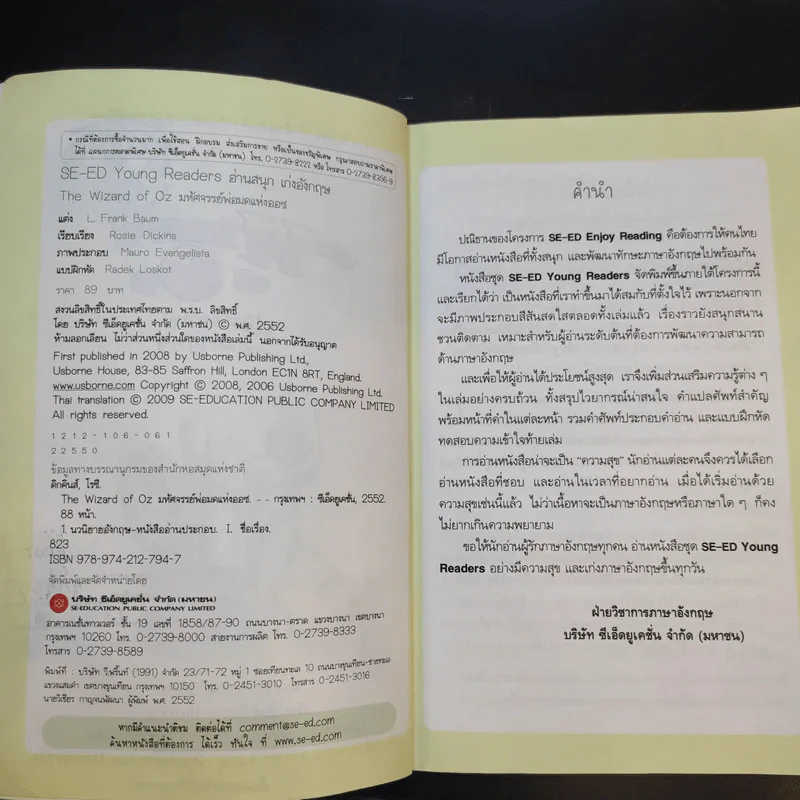 • กรณีที่ต้องการซื้อจำนวนมาก เพื่อใช้สอน ฝึกอบรม ส่งเสริมการขาย หรือเป็นของขวัญพิเศษ กรุณาสอบถามราคาพิเศษ
ได้ที่ แผนกการตลาดพิเศษ บริษัท ซีเอ็ดยูเคชั่น จำกัด (มหาชน) โทร. 0-2739-8222 หรือ โทรสาร 0-2739-8356-9
SE-ED Young Readers อ่านสนุก เก่งอังกฤษ
The Wizard of Oz มหัศจรรย์พ่อมดแห่งออซ
แต่ง L. Frank Baum
เรียบเรียง Rosie Dickins
ภาพประกอบ Mauro Evangelista
แบบฝึกหัด Radek Loskot
ราคา 89 บาท
สงวนลิขสิทธิ์ในประเทศไทยตาม พ.ร.บ. ลิขสิทธิ์
โดย บริษัท ซีเอ็ดยูเคชั่น จำกัด (มหาชน) © พ.ศ. 2552
ห้ามลอกเลียน ไม่ว่าส่วนหนึ่งส่วนใดของหนังสือเล่มนี้ นอกจากได้รับอนุญาต
First published in 2008 by Usborne Publishing Ltd.,
Usborne House, 83-85 Saffron Hill, London EC1N 8RT, England.
www.usborne.com Copyright © 2008, 2006 Usborne Publishing Ltd.
Thai translation © 2009 SE-EDUCATION PUBLIC COMPANY LIMITED
All rights reserved.
1 2 1 2 - 1 0 6 - 0 6 1
2 2 5 5 0
ข้อมูลทางบรรณานุกรมของสำนักหอสมุดแห่งชาติ
ดิกคินส์, โรซี.
The Wizard of Oz มหัศจรรย์พ่อมดแห่งออซ. - - กรุงเทพฯ : ซีเอ็ดยูเคชั่น, 2552.
88 หน้า.
1. นวนิยายอังกฤษ-หนังสืออ่านประกอบ. I. ชื่อเรื่อง.
823
ISBN 978-974-212-794-7
จัดพิมพ์และจัดจำหน่ายโดย
บริษัท ซีเอ็ดยูเคชั่น จำกัด (มหาชน)
SE-EDUCATION PUBLIC COMPANY LIMITED
อาคารเนชั่นทาวเวอร์ ชั้น 19 เลขที่ 1858/87-90 ถนนบางนา-ตราด แขวงบางนา เขตบางนา
กรุงเทพฯ 10260 โทร. 0-2739-8000 สายงานการผลิต โทร. 0-2739-8333
โทรสาร 0-2739-8589
พิมพ์ที่ : บริษัท วี.พริ้นท์ (1991) จำกัด 23/71-72 หมู่ 1 ซอยเทียนทะเล 10 ถนนบางขุนเทียน-ชายทะเล
แขวงแสมดำ เขตบางขุนเทียน กรุงเทพฯ 10150 โทร. 0-2451-3010 โทรสาร 0-2451-3016
นายวิเชียร กาญจนพัฒนา ผู้พิมพ์ พ.ศ. 2552
หากมีคำแนะนำติชม ติดต่อได้ที่ comment@se-ed.com
ค้นหาหนังสือที่ต้องการ ได้เร็ว ทันใจ ที่ www.se-ed.com
คำนำ
ปณิธานของโครงการ SE-ED Enjoy Reading คือต้องการให้คนไทย
มีโอกาสอ่านหนังสือที่ทั้งสนุก และพัฒนาทักษะภาษาอังกฤษไปพร้อมกัน
หนังสือชุด SE-ED Young Readers จัดพิมพ์ขึ้นภายใต้โครงการนี้
และเรียกได้ว่า เป็นหนังสือที่เราทำขึ้นมาได้สมกับที่ตั้งใจไว้ เพราะนอกจาก
จะมีภาพประกอบสีสันสดใสตลอดทั้งเล่มแล้ว เรื่องราวยังสนุกสนาน
ชวนติดตาม เหมาะสำหรับผู้อ่านระดับต้นที่ต้องการพัฒนาความสามารถ
ด้านภาษาอังกฤษ
และเพื่อให้ผู้อ่านได้ประโยชน์สูงสุด เราจึงเพิ่มส่วนเสริมความรู้ต่าง ๆ
ในเล่มอย่างครบถ้วน ทั้งสรุปไวยากรณ์น่าสนใจ คำแปลศัพท์สำคัญ
พร้อมหน้าที่คำในแต่ละหน้า รวมคำศัพท์ประกอบคำอ่าน และแบบฝึกหัด
ทดสอบความเข้าใจท้ายเล่ม
การอ่านหนังสือน่าจะเป็น "ความสุข" นักอ่านแต่ละคนจึงควรได้เลือก
อ่านหนังสือที่ชอบ และอ่านในเวลาที่อยากอ่าน เมื่อได้เริ่มอ่านด้วย
ความสุขเช่นนี้แล้ว ไม่ว่าเนื้อหาจะเป็นภาษาอังกฤษหรือภาษาใด ๆ ก็คง
ไม่ยากเกินความพยายาม
ขอให้นักอ่านผู้รักภาษาอังกฤษทุกคน อ่านหนังสือชุด SE-ED Young
Readers อย่างมีความสุข และเก่งภาษาอังกฤษขึ้นทุกวัน
ฝ่ายวิชาการภาษาอังกฤษ
บริษัท ซีเอ็ดยูเคชั่น จำกัด (มหาชน)